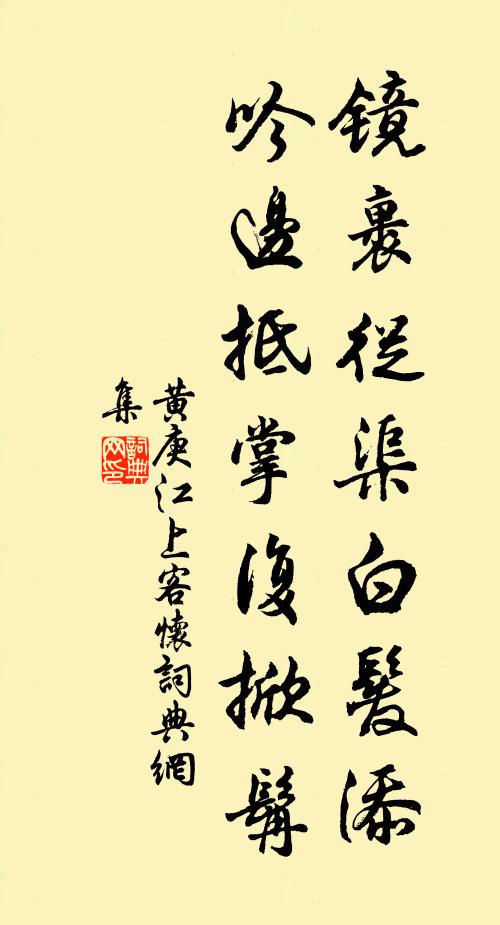 镜裏従渠白髮添
吟邊抵掌復掀髯
黄庚江上客懷詞典網
集
詞典
网印